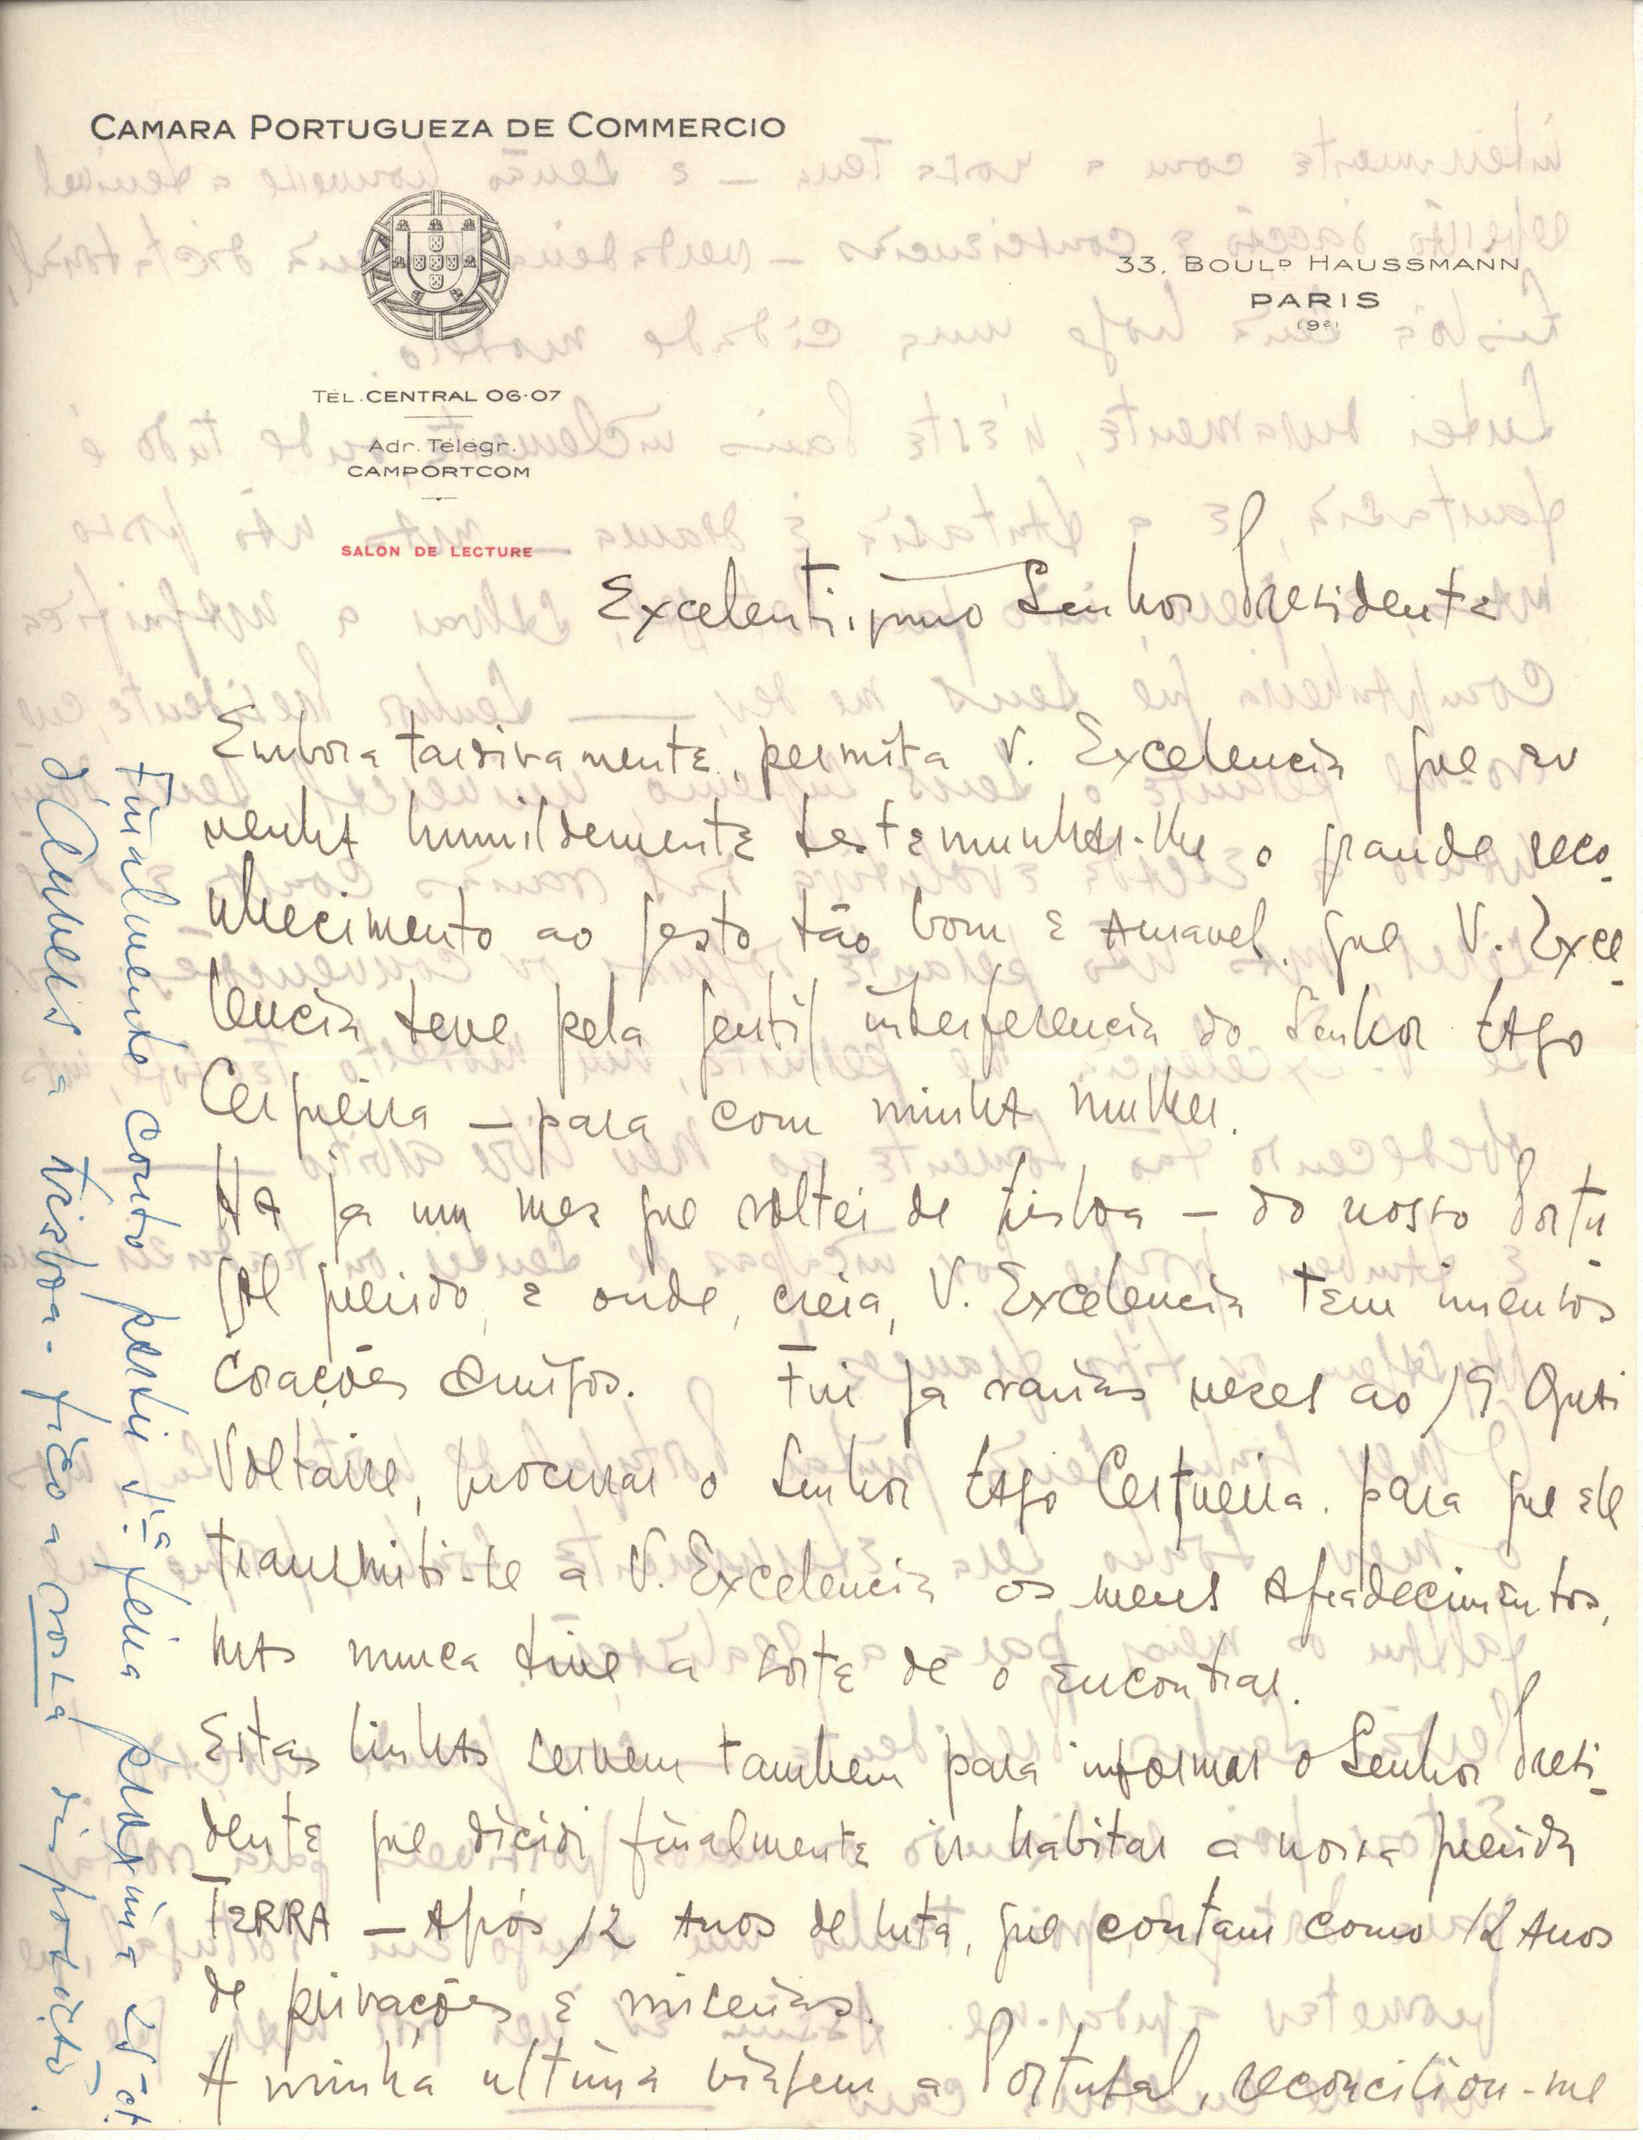 CAMARA PORTUGUEZA DE COMMERCIO
33, BOULD HAUSSMANN
PARIS
(9e)
TÉL. CENTRAL 06-07
Adr. Télégr.
CAMPORTCOM
SALON DE LECTURE
Excelentissimo Senhor Presidente
Embora tardivamente, permita V. Excelencia que eu
venha humildemente testemunhar-lhe o grande reco-
nhecimento ao gesto tão bom e amavel, que V. Exce-
lencia teve pela gentil interferencia do Senhor Tiago
Cerqueira — para com minha mulher.
Ha ja um mez que voltei de Lisboa — do nosso Portu-
gal querido, e onde, creia, V. Excelencia tem imensos
corações amigos. Fui ja varias vezes ao 19 Quai
Voltaire, procurar o Senhor Tiago Cerqueira. para que ele
transmiti-se a V. Excelencia os meus agradecimentos,
mas nunca tive a sorte de o encontrar.
Estas linhas servem tambem para informar o Senhor Presi-
dente que dicidi finalmente ir habitar a nossa querida
TERRA — Após 12 anos de luta, que contam como 12 anos
de privações e miserias.
A minha ultima viagem a Portugal, reconciliou-me
Finalmente conto partir 5.ª feira proxima 25 ct.
d'Anvers a Lisboa - fico a vossa disposição.